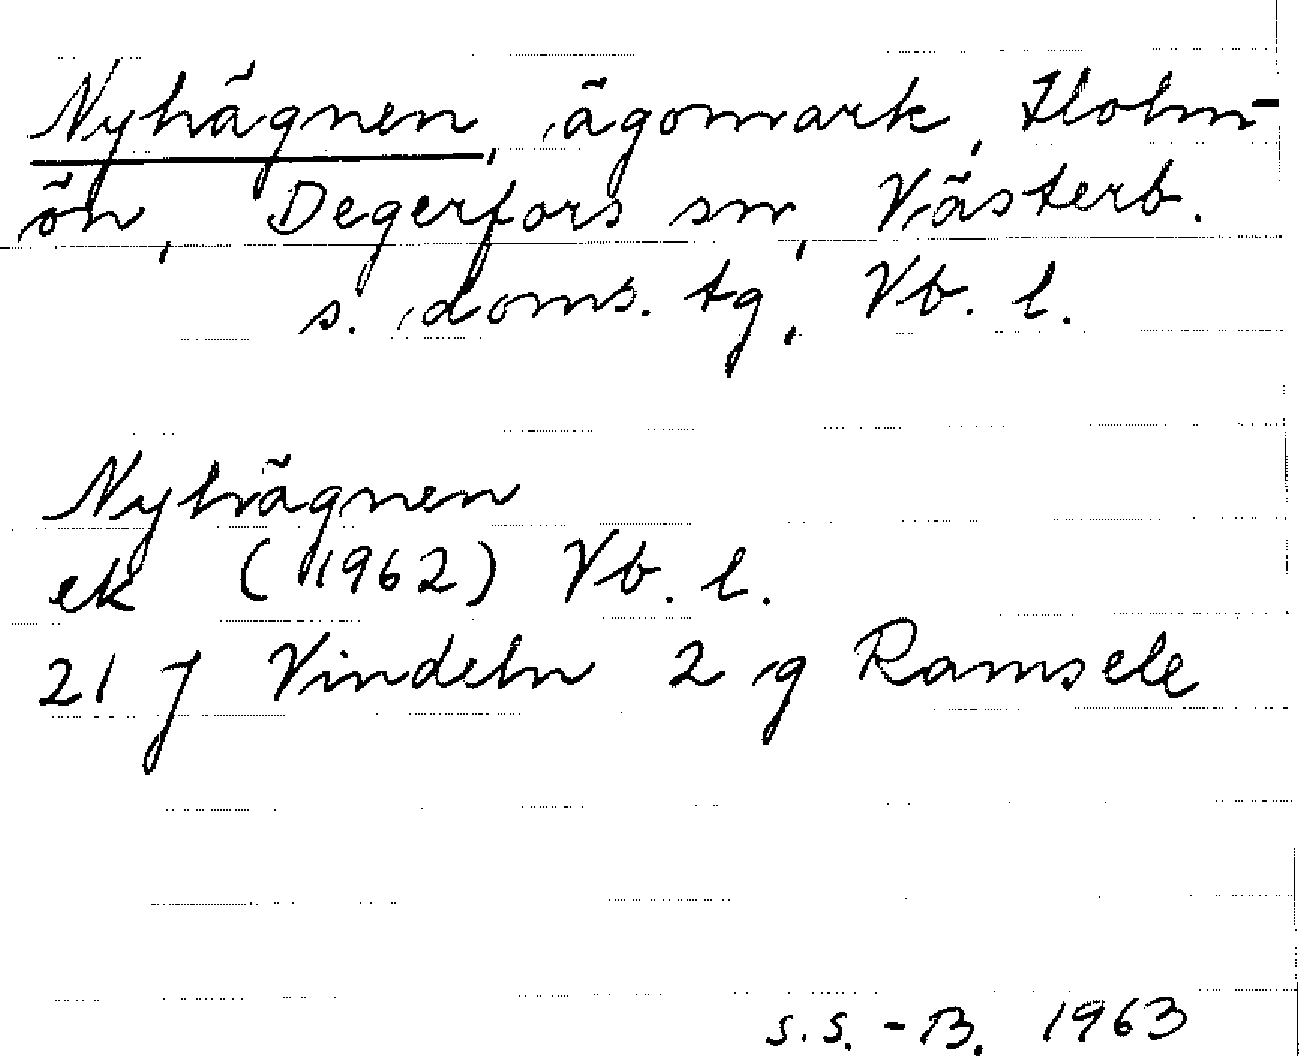 Nyhägnen, ägomark, Holm-
ön, Degerfors sn, Västerb.
s. doms. tg, Vb. l.
Nyhägnen
ek (1962) Vb. l.
21 J Vindeln 2 g Ramsele
s.s. - B. 1963